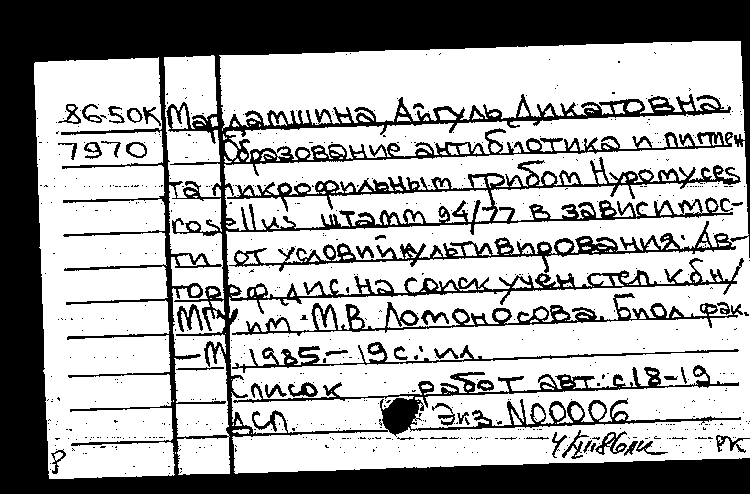 86-50К Мардамшина, Айгуль Ликатовна
7970 Образование антибиотика и пигмен
та микрофильным грибом Hypomyces
rosellus штамм 94/77 в зависимос-
ти от условий культивирования: Ав-
тореф. дис. на соиск. учен. степ. к.б.н/
МГУ им. М.В. Ломоносова. Биол. фак.
—М., 1985.—19 с.: ил.
Список работ авт.: с.18-19.
ДСП. Экз. N00006
РК